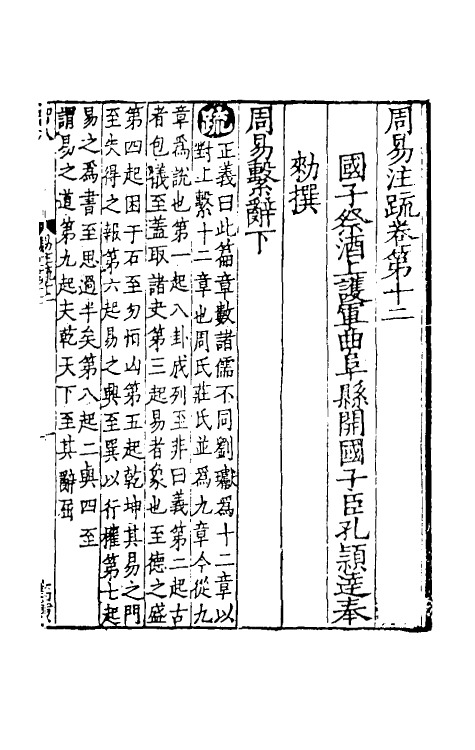 周易注疏卷第十二
國子祭酒上護軍曲阜縣開國子臣孔穎達奉
勑撰
周易繫辭下
疏正義曰此篇章數諸儒不同劉瓛爲十二章以
對上繫十二章也周氏莊氏並爲九章今從九
章爲說也第一起八卦成列至非曰義第二起古
者包犧至蓋取諸夬第三起易者象也至德之盛
第四起困于石至勿恒凶第五起乾坤其易之門
至失得之報第六起易之興至巽以行權第七起
易之爲書至思過半矣第八起二與四至
謂易之道第九起夫乾天下至其辭屈